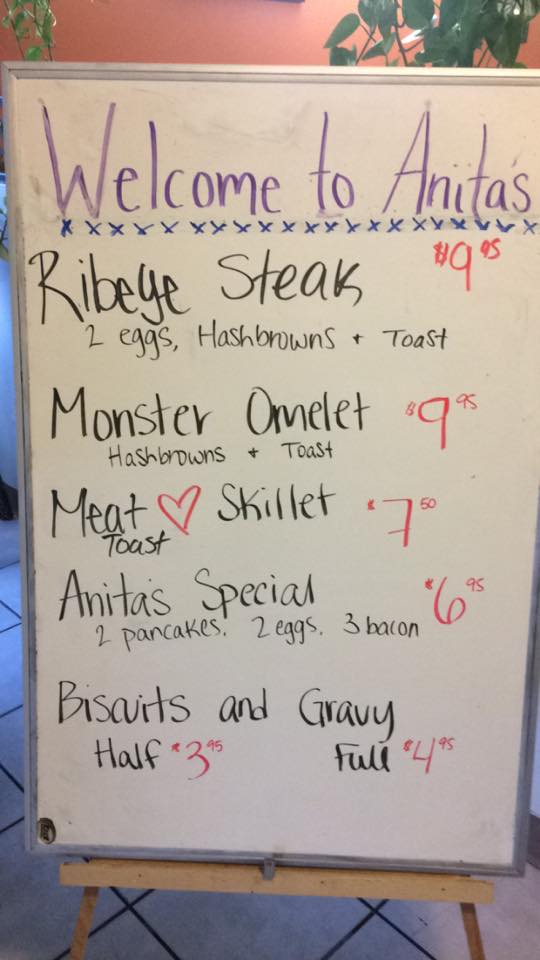 Welcome to Anita's
xxxxxxxxxxxxxxxxxxxxx
Ribeye Steak $9.95
2 eggs, Hashbrowns + Toast
Monster Omelet $9.95
Hashbrowns + Toast
Meat ♡ Skillet $7.50
Toast
Anita's Special $6.95
2 pancakes. 2 eggs. 3 bacon
Biscuits and Gravy
Half $3.95 Full $4.95